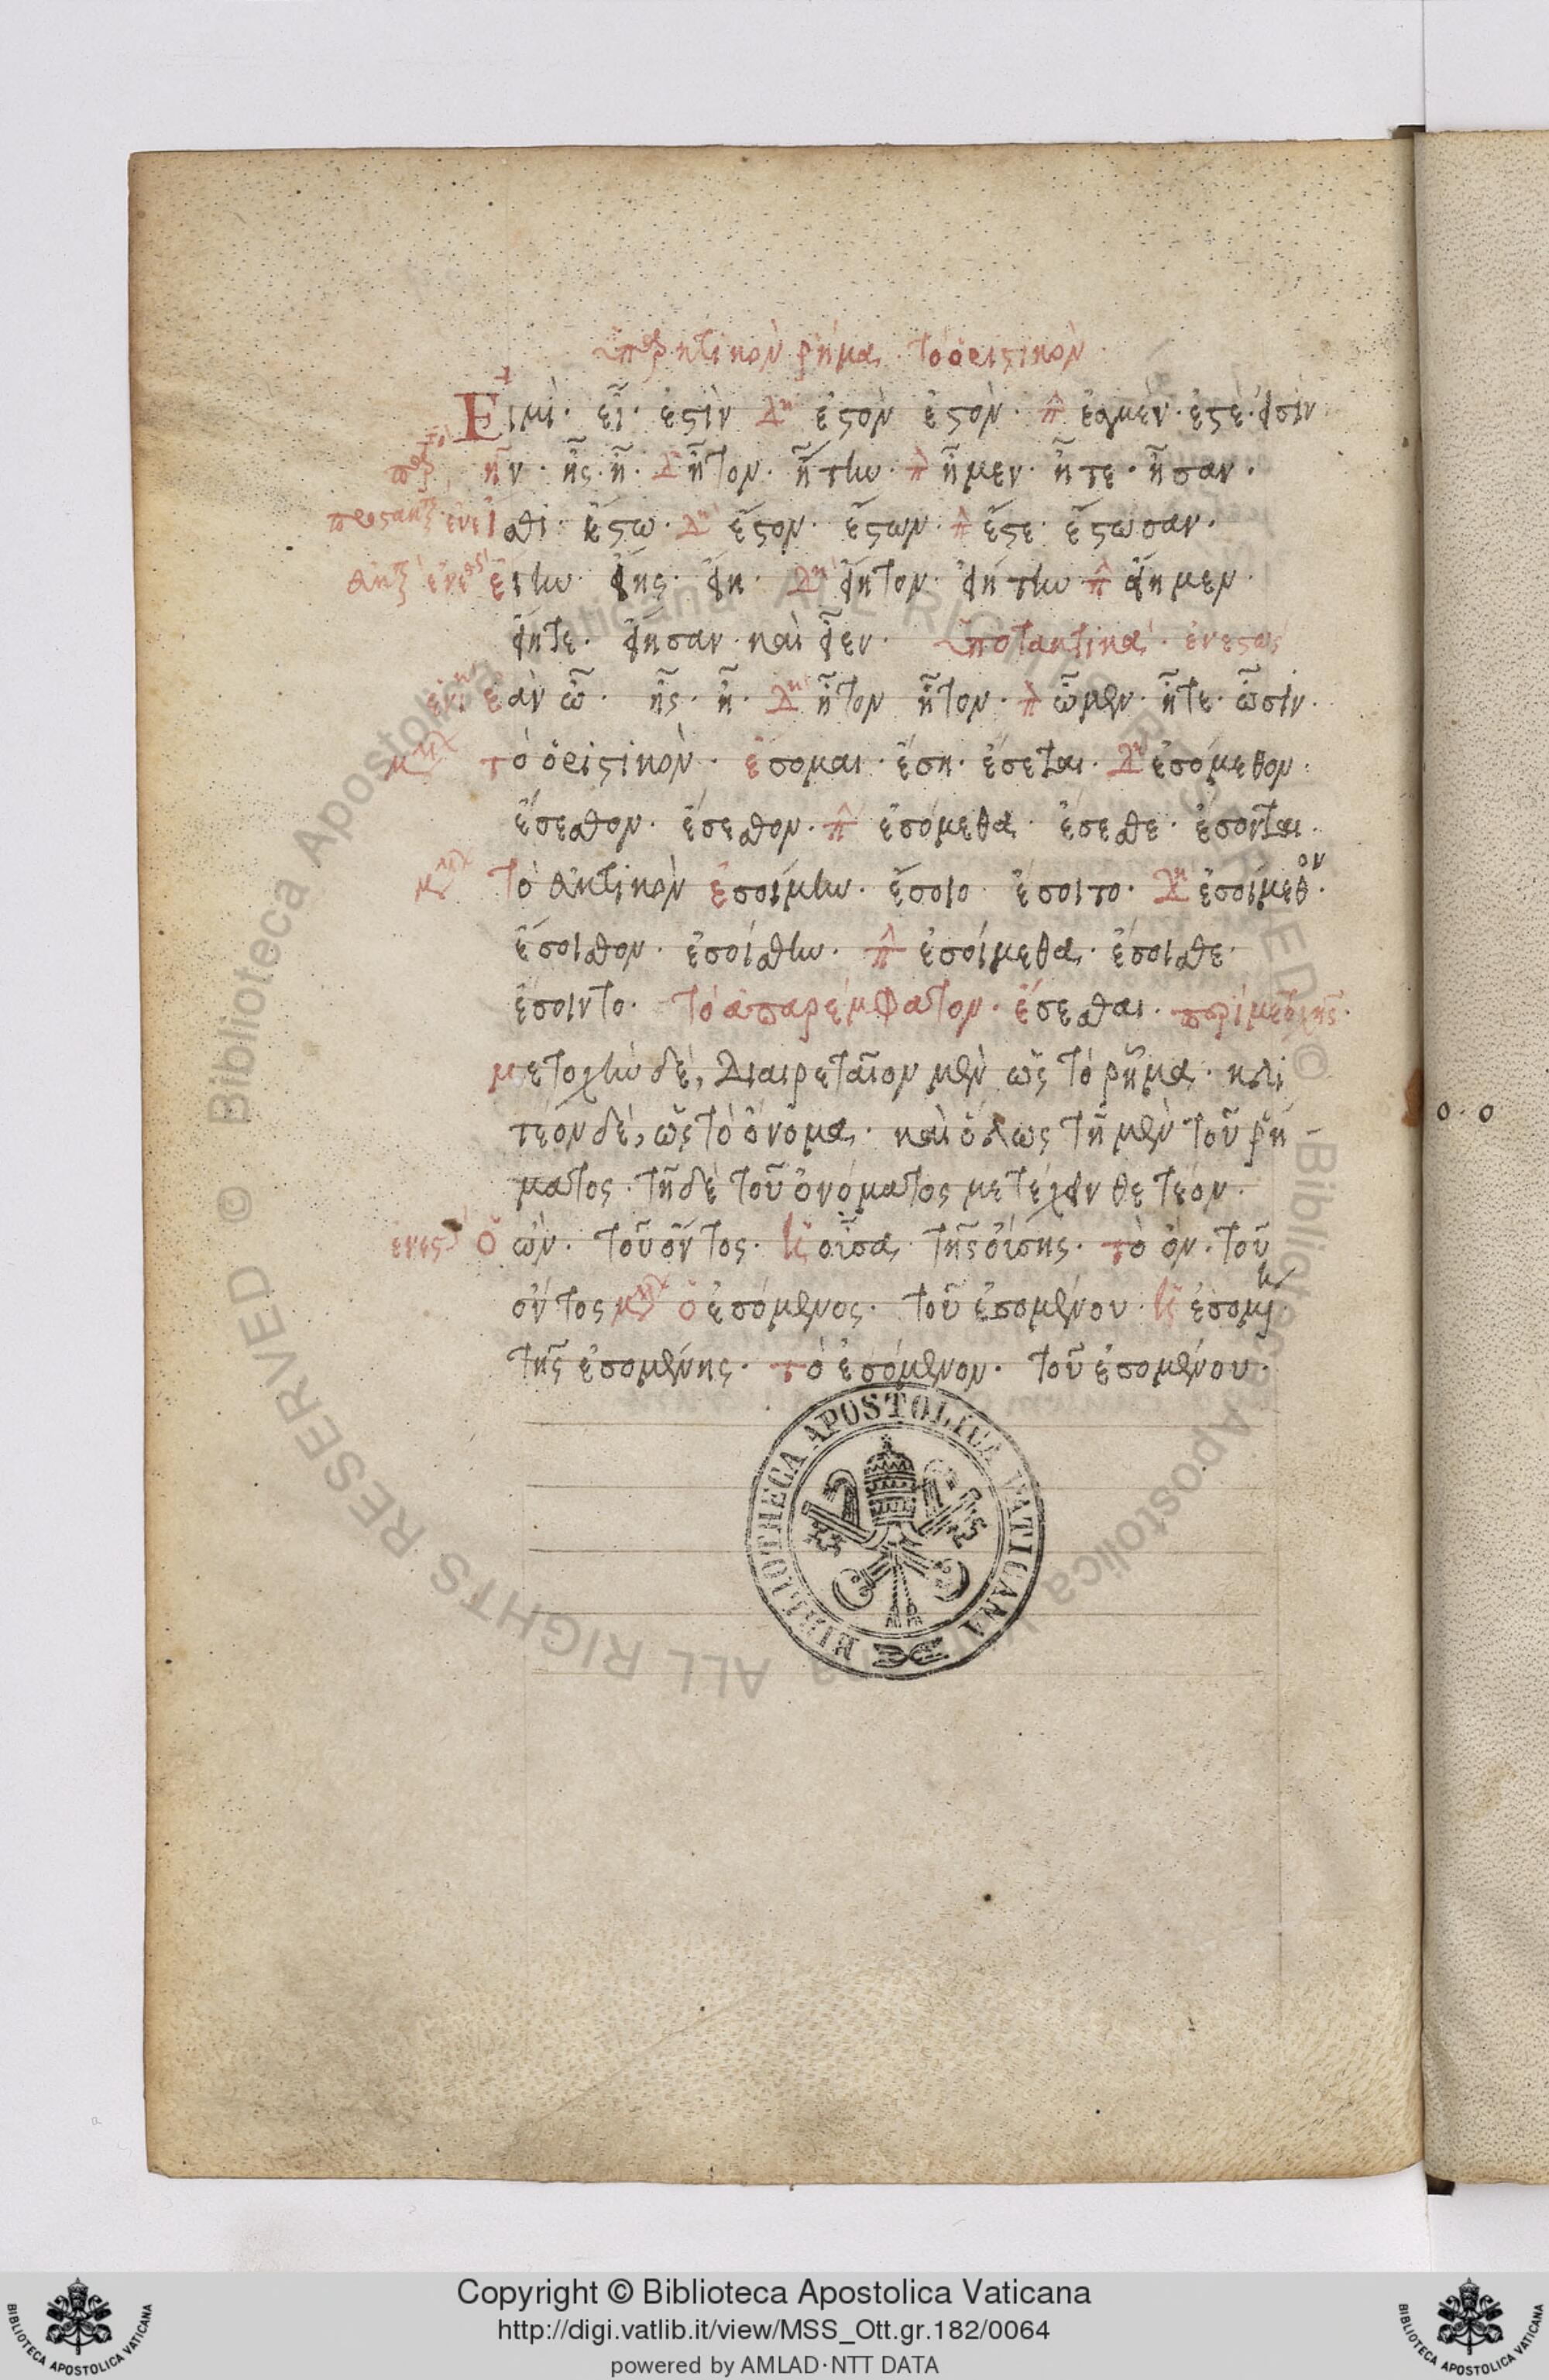 ὑπαρκτικὸν ῥῆμα. τὸ ὁριστικὸν.
Εἰμὶ. εἶ. ἐστὶν Δυ ἐστὸν ἐστὸν. π ἐσμὲν. ἐστὲ. εἰσὶν
ἦν. ἦς. ἦ. Δυ ἦτον. ἤτην. π ἦμεν. ἦτε. ἦσαν.
ἴσθι. ἔστω. Δυ ἔστον. ἔστων. π ἔστε. ἔστωσαν.
εἴην. εἴης. εἴη. Δυ εἴητον. εἰήτην π εἴημεν.
εἴητε. εἴησαν. καὶ εἶεν. ὑποτακτικά. ἐνεστώς
ἐὰν ὦ. ἦς. ἦ. Δυ ἦτον ἦτον. π ὦμεν. ἦτε. ὦσιν.
τὸ ὁριστικὸν. ἔσομαι. ἔση. ἔσεται. Δυ ἐσόμεθον.
ἔσεσθον. ἔσεσθον. π ἐσόμεθα. ἔσεσθε. ἔσονται.
τὸ εὐκτικὸν ἐσοίμην. ἔσοιο ἔσοιτο. Δυ ἐσοίμεθον.
ἔσοισθον. ἐσοίσθην. π ἐσοίμεθα. ἔσοισθε.
ἔσοιντο. τὸ ἀπαρέμφατον. ἔσεσθαι. περὶ μετοχῆς.
μετοχὴν δὲ, διαιρεταῖον μὲν ὡς τὸ ῥῆμα. κλι
τέον δὲ, ὡς τὸ ὄνομα. καὶ ὅλως τῆ μὲν τοῦ ῥή
ματος. τῆ δὲ τοῦ ὀνόματος μετέχειν θετέον.
ὁ ὢν. τοῦ ὄντος. ἡ οὖσα τῆς οὔσης. τὸ ὂν. τοῦ
ὄντος μελλ ὁ ἐσόμενος. τοῦ ἐσομένου. ἡ ἐσομένη.
τῆς ἐσομένης. τὸ ἐσόμενον. τοῦ ἐσομένου.
BIBLIOTHECA APOSTOLICA VATICANA
Copyright © Biblioteca Apostolica Vaticana
http://digi.vatlib.it/view/MSS_Ott.gr.182/0064
powered by AMLAD·NTT DATA